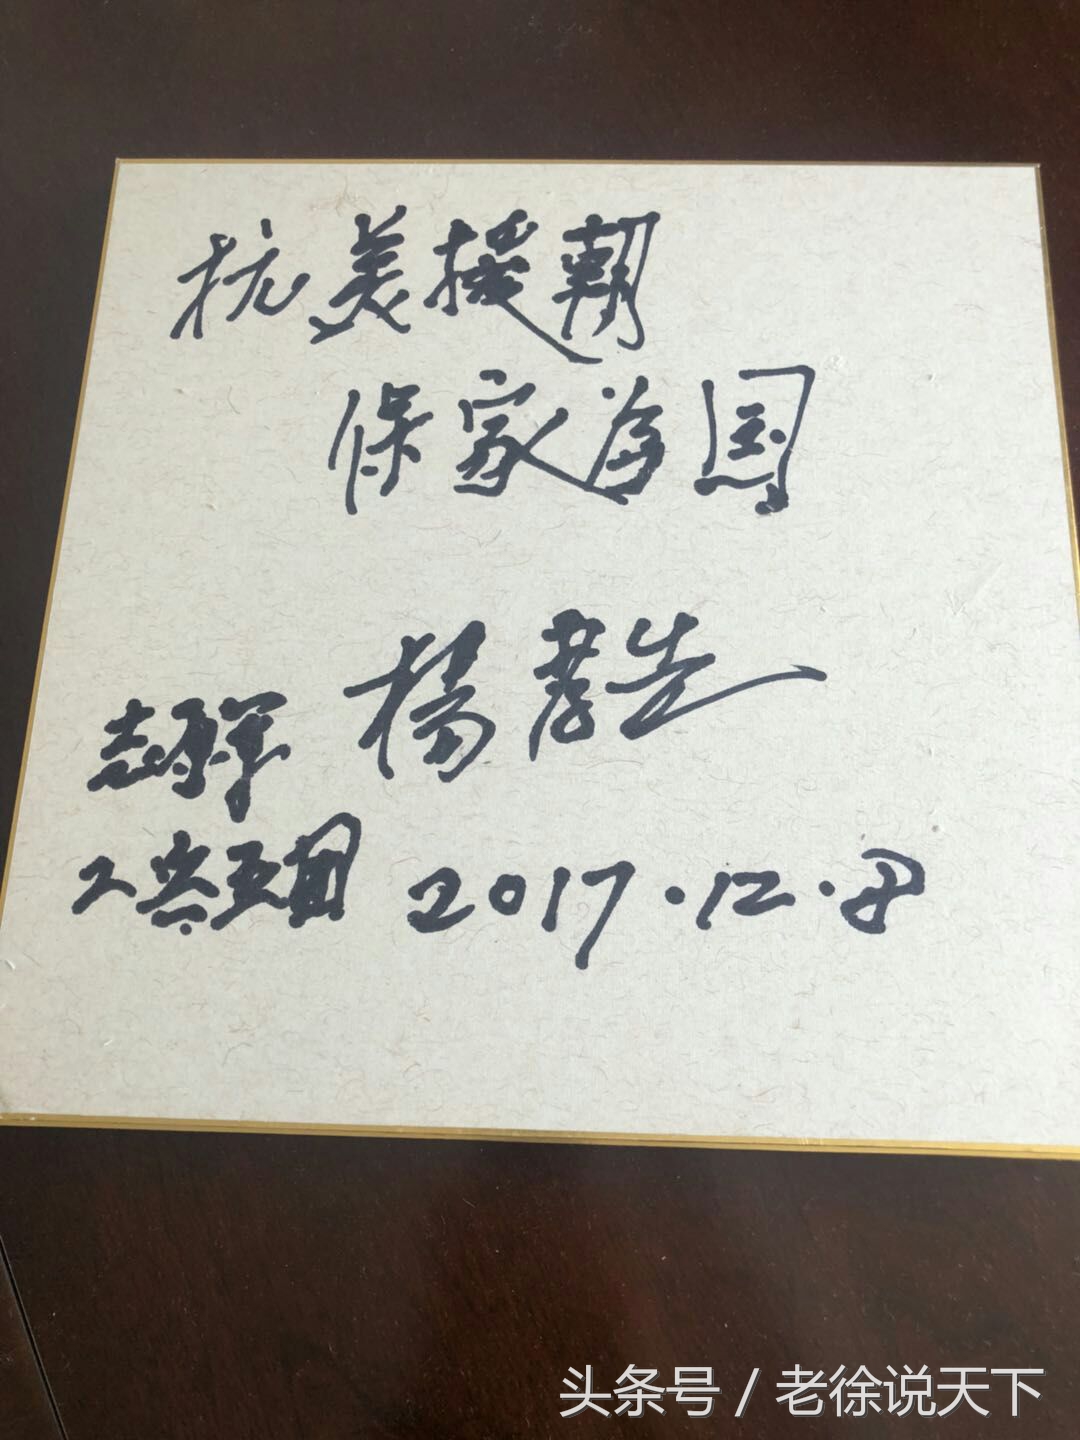 抗美援朝
保家为国
杨孝先
志愿军
工兵五团 2017.12.8
头条号 / 老徐说天下